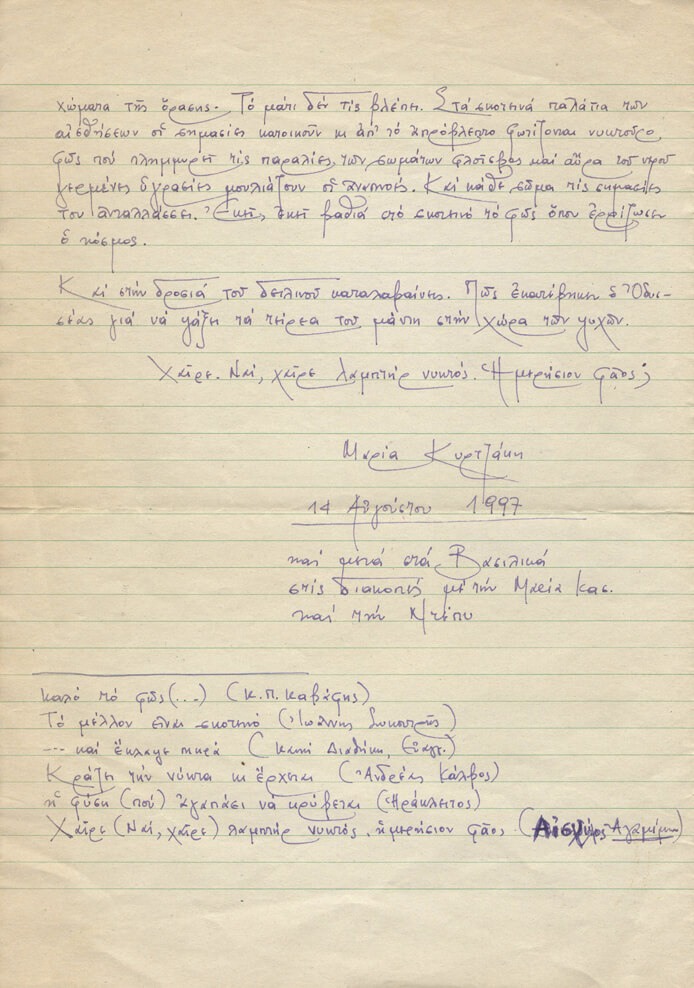 χώματα τῆς ὅρασης. Τό μάτι δέν τίς βλέπει. Στά σκοτεινά παλάτια τῶν
αἰσθήσεων οἱ σημασίες κατοικοῦν κι ἀπ' τό ἀπρόβλεπτο φωτίζονται νυκτοῦρο,
φῶς πού πλημμυρεῖ τίς παραλίες, τῶν σωμάτων φλοῖσβος καί αὔρα τοῦ νεροῦ
γερμένες ὑγρασίες μουλιάζουν οἱ Καί κάθε σῶμα τίς σημασίες
του ἀνταλλάσσει. Ἐκεῖ, ἐκεῖ βαθιά στό σκοτεινό τό φῶς ὅπου ἐρρίζωσεν
ὁ κόσμος.
Καί στήν δροσιά τοῦ δειλινοῦ καταλαβαίνεις. Πῶς ἐκατέβηκεν ὁ Ὀδυσ-
σέας γιά νά ψάξει τά τείρεα τοῦ μάντη στήν χώρα τῶν ψυχῶν.
Χαῖρε. Ναί, χαῖρε λαμπτήρ νυκτός. Ἡμερήσιον φάος;
Μαρία Κυρτζάκη
14 Αὐγούστου 1997
καί μετά στά Βασιλικά
στίς διακοπές μέ τήν Μαρία Κασ.
καί τήν Ντέπυ
καλό τό φῶς (...) (Κ.Π. Καβάφης)
Τό μέλλον εἶναι σκοτεινό (Ἰωάννης Συκουτρῆς)
--- καί ἔκλαψε πικρά (Καινή Διαθήκη, Εὐαγγ.)
Κράζει τήν νύκτα κι ἔρχεται (Ἀνδρέας Κάλβος)
ἡ φύση (πού) ἀγαπάει νά κρύβεται (Ἡράκλειτος)
Χαῖρε (Ναί, χαῖρε) λαμπτήρ νυκτός, ἡμερήσιον φάος (Αἰσχύλος Ἀγαμέμνων)